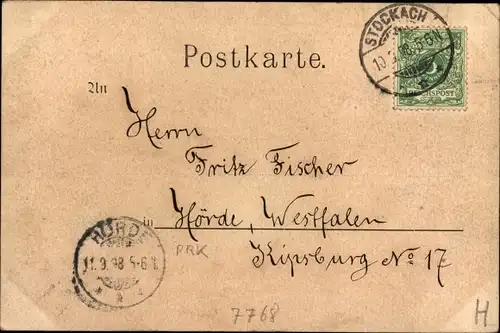 Postkarte.
STOCKACH
10.9.98.5-6N.
5
REICHSPOST
An
Herrn
Fritz Fischer
in Hörde, Westfalen
Kipsburg No 17
HÖRDE
11.9.98 5-6N.
PRK
7768
H